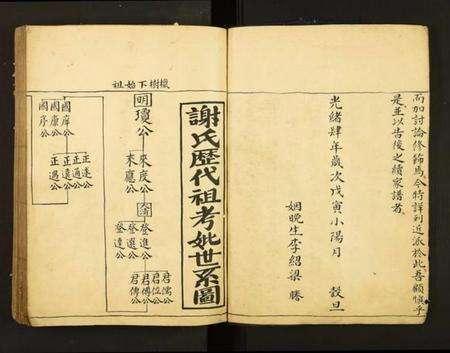 而加討論修飾焉今特詳到近派於此吾顧慎乎
是並以告後之續家譜者
光緒肆年歲次戊寅小陽月 穀旦
姻晚生李紹梁 謄
謝氏歷代祖考妣世系圖
樹下始祖
明
瓊公
來度公
來應公
登進公
登選公
登達公
君儒公
君位公
君傅公
君傳公
國庠公
國康公
國序公
正達公
正通公
正道公
正遇公